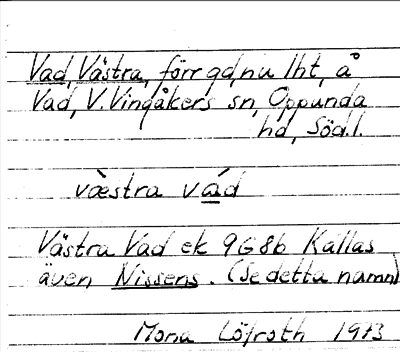 Vad, Västra, förr gd, nu lht, å
Vad, V. Vingåkers sn, Oppunda
hd, Södl.
væ̀stra vád
Västra Vad ek 9G8b Kallas
även Nissens. (Se detta namn)
Mona Löfroth 1973